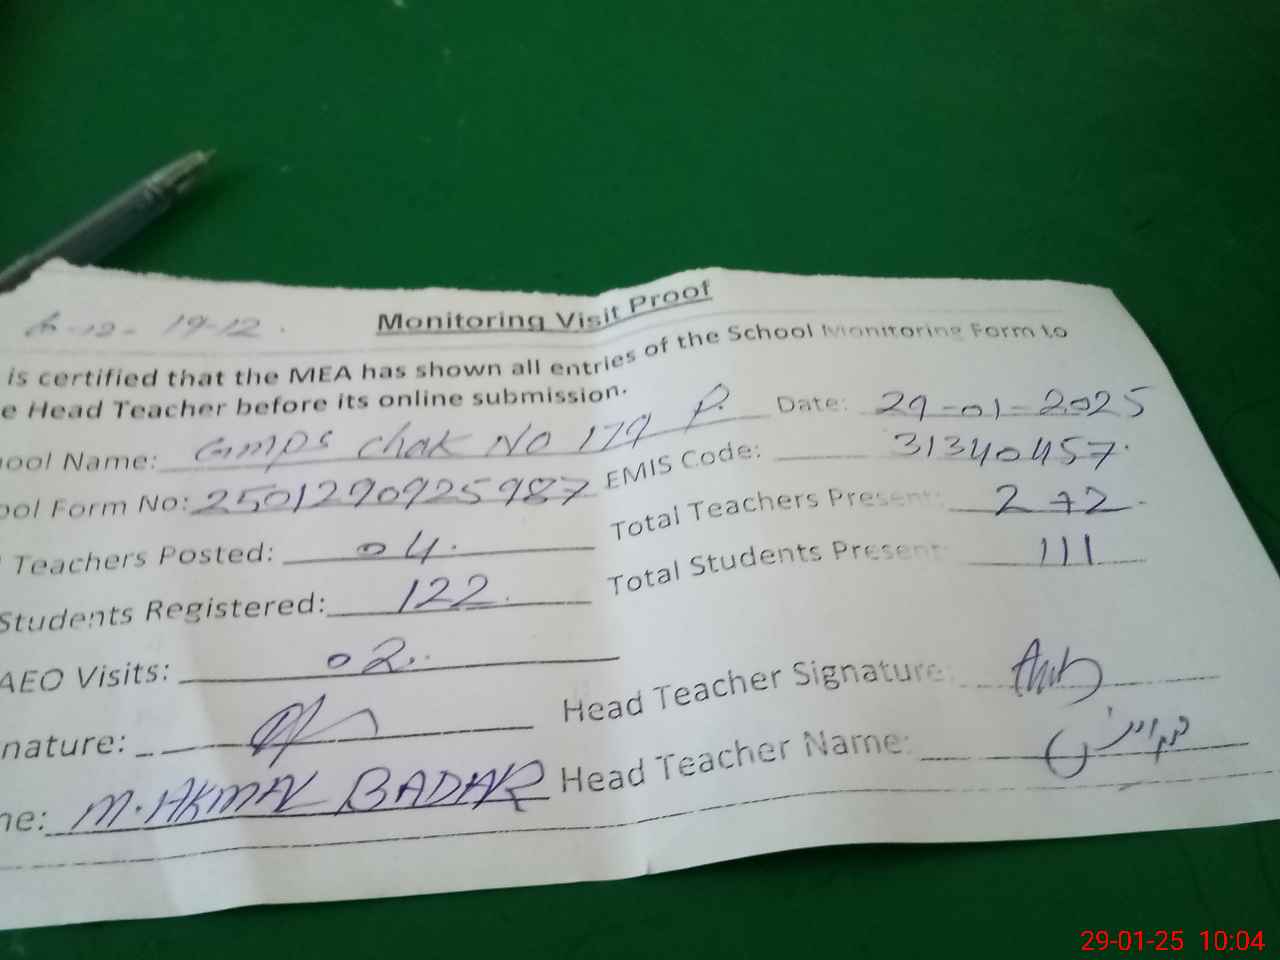 19-12.
Monitoring Visit Proof
is certified that the MEA has shown all entries of the School Monitoring Form to
e Head Teacher before its online submission.
ool Name: GMPS Chak No 179 P. Date: 29-01-2025
ool Form No: 2501290925987 EMIS Code: 31340457.
Teachers Posted: 04. Total Teachers Present: 2+2
Students Registered: 122. Total Students Present: 111
AEO Visits: 02.
nature: Head Teacher Signature:
ne: M. AKMAL BADAR Head Teacher Name:
29-01-25 10:04